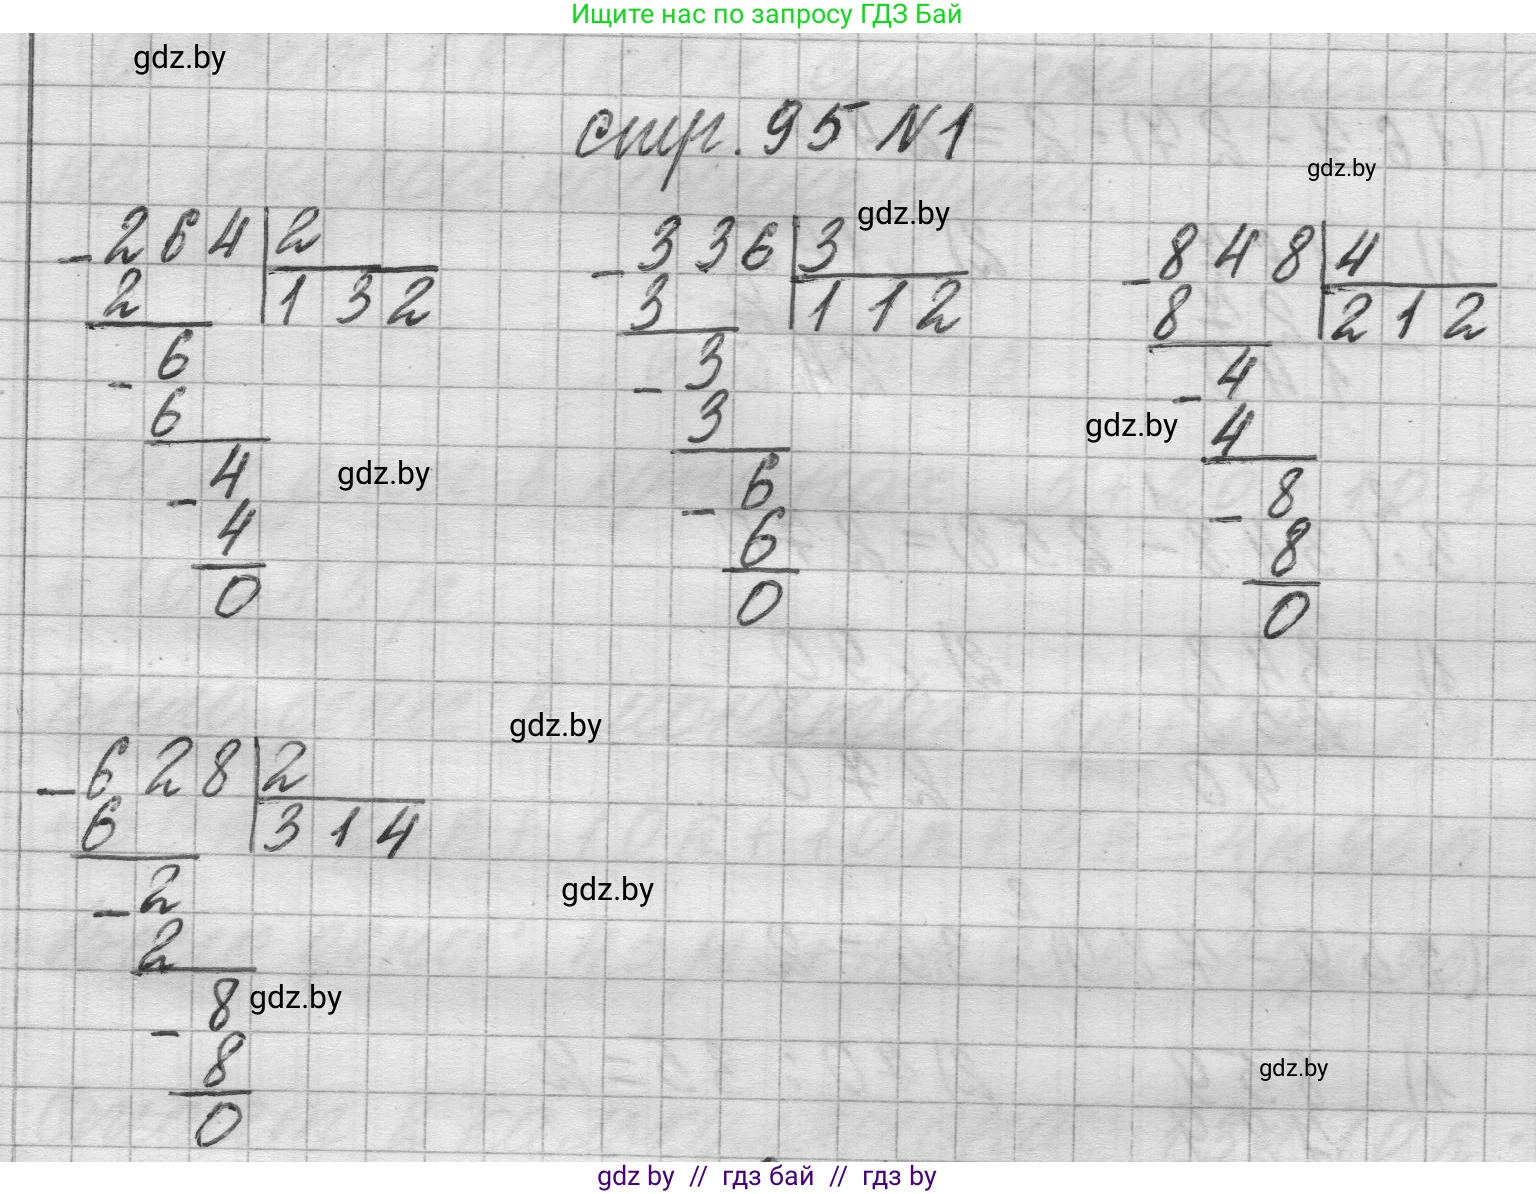 Ищите нас по запросу ГДЗ Бай
gdz.by
стр. 95 N1
gdz.by
gdz.by
- 264 | 2
2 | 132
- 6
6
- 4
4
0
gdz.by
- 336 | 3
3 | 112
- 3
3
- 6
6
0
- 848 | 4
8 | 212
- 4
4
- 8
8
0
gdz.by
gdz.by
- 628 | 2
6 | 314
- 2
2
- 8
8
0
gdz.by
gdz.by
gdz.by
gdz by // гдз бай // гдз by